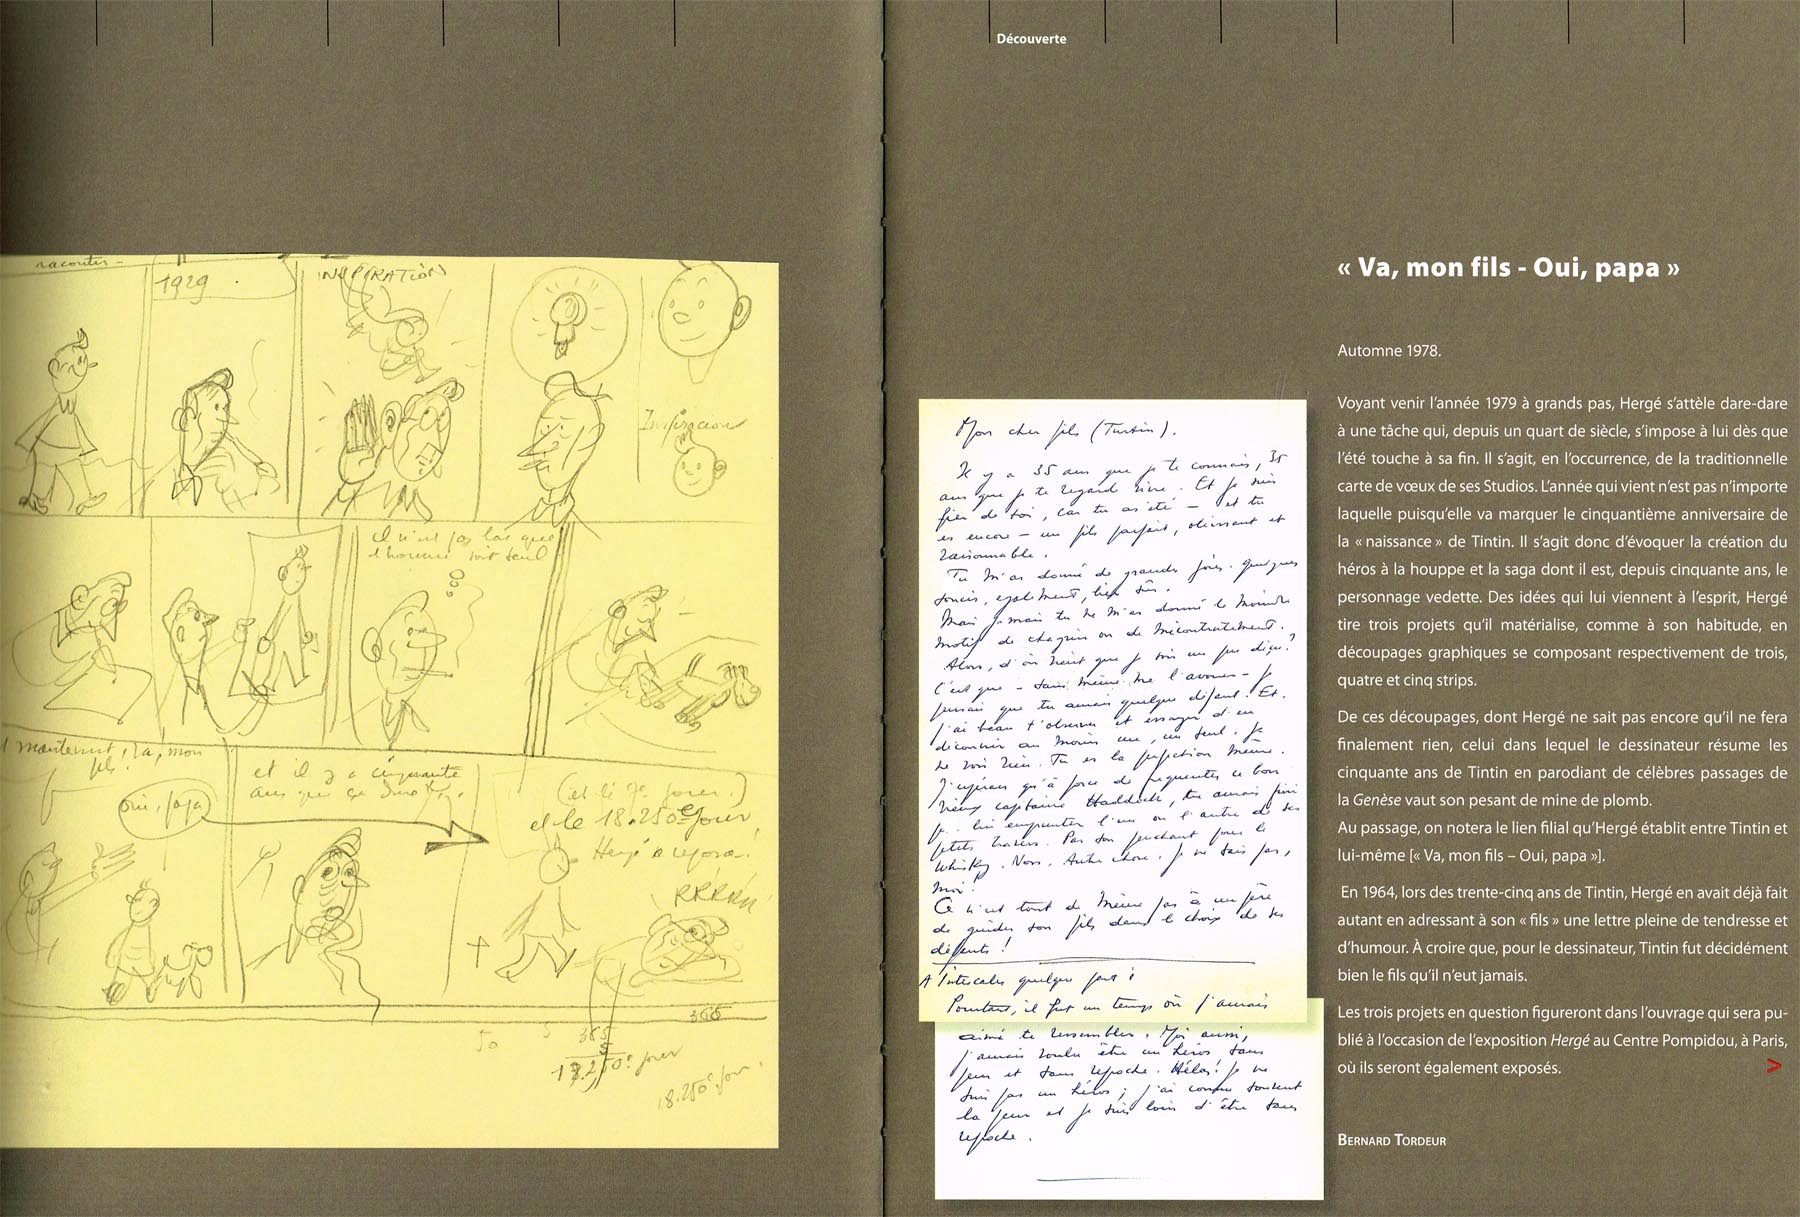 raconter -
1929
INSPIRATION
Inspiration
il n'est pas bon que
l'homme soit seul
maintenant, va, mon
fils!
Oui, papa
et il y a cinquante
ans que ça dure
(et le 7e jour)
et le 18.250e jour
Hergé
RRRRR
365
50
365
18.250e jour
18.250e jour.
Découverte
Mon cher fils (Tintin).
Il y a 35 ans que je te connais, 35
ans que je te regard vivre. Et je suis
fier de toi, car tu as été – et tu
es encore – un fils parfait, obéissant et
raisonnable.
Tu m'as donné de grandes joies. Quelques
soucis, également, bien sûr.
Mais jamais tu ne m'as donné le moindre
motif de chagrin ou de mécontentement.
Alors, d'où vient que je sois un peu déçu?
C'est que – sans même me l'avouer – je
pensais que tu aurais quelque défaut. Et
j'ai beau t'observer et essayer d'en
découvrir au moins un, un seul, je
ne vois rien. Tu es la perfection même.
J'espérais qu'à force de fréquenter ce bon
vieux capitaine Haddock, tu aurais fini
par lui emprunter l'un ou l'autre de ses
petits travers. Pas son penchant pour le
whisky, non. Autre chose, je ne sais pas,
moi!
Ce n'est tout de même pas à un père
de guider son fils dans le choix de ses
défauts!
A intercaler quelque part:
Pourtant, il fut un temps où j'aurais
aimé te ressembler. Moi aussi,
j'aurais voulu être un héros sans
peur et sans reproche. Hélas! je ne
suis pas un héros; j'ai connu souvent
la peur et je suis loin d'être sans
reproche.
« Va, mon fils - Oui, papa »
Automne 1978.
Voyant venir l'année 1979 à grands pas, Hergé s'attèle dare-dare
à une tâche qui, depuis un quart de siècle, s'impose à lui dès que
l'été touche à sa fin. Il s'agit, en l'occurrence, de la traditionnelle
carte de vœux de ses Studios. L'année qui vient n'est pas n'importe
laquelle puisqu'elle va marquer le cinquantième anniversaire de
la « naissance » de Tintin. Il s'agit donc d'évoquer la création du
héros à la houppe et la saga dont il est, depuis cinquante ans, le
personnage vedette. Des idées qui lui viennent à l'esprit, Hergé
tire trois projets qu'il matérialise, comme à son habitude, en
découpages graphiques se composant respectivement de trois,
quatre et cinq strips.
De ces découpages, dont Hergé ne sait pas encore qu'il ne fera
finalement rien, celui dans lequel le dessinateur résume les
cinquante ans de Tintin en parodiant de célèbres passages de
la Genèse vaut son pesant de mine de plomb.
Au passage, on notera le lien filial qu'Hergé établit entre Tintin et
lui-même [« Va, mon fils – Oui, papa »].
En 1964, lors des trente-cinq ans de Tintin, Hergé en avait déjà fait
autant en adressant à son « fils » une lettre pleine de tendresse et
d'humour. À croire que, pour le dessinateur, Tintin fut décidément
bien le fils qu'il n'eut jamais.
Les trois projets en question figureront dans l'ouvrage qui sera pu-
blié à l'occasion de l'exposition Hergé au Centre Pompidou, à Paris,
où ils seront également exposés.
>
Bernard Tordeur